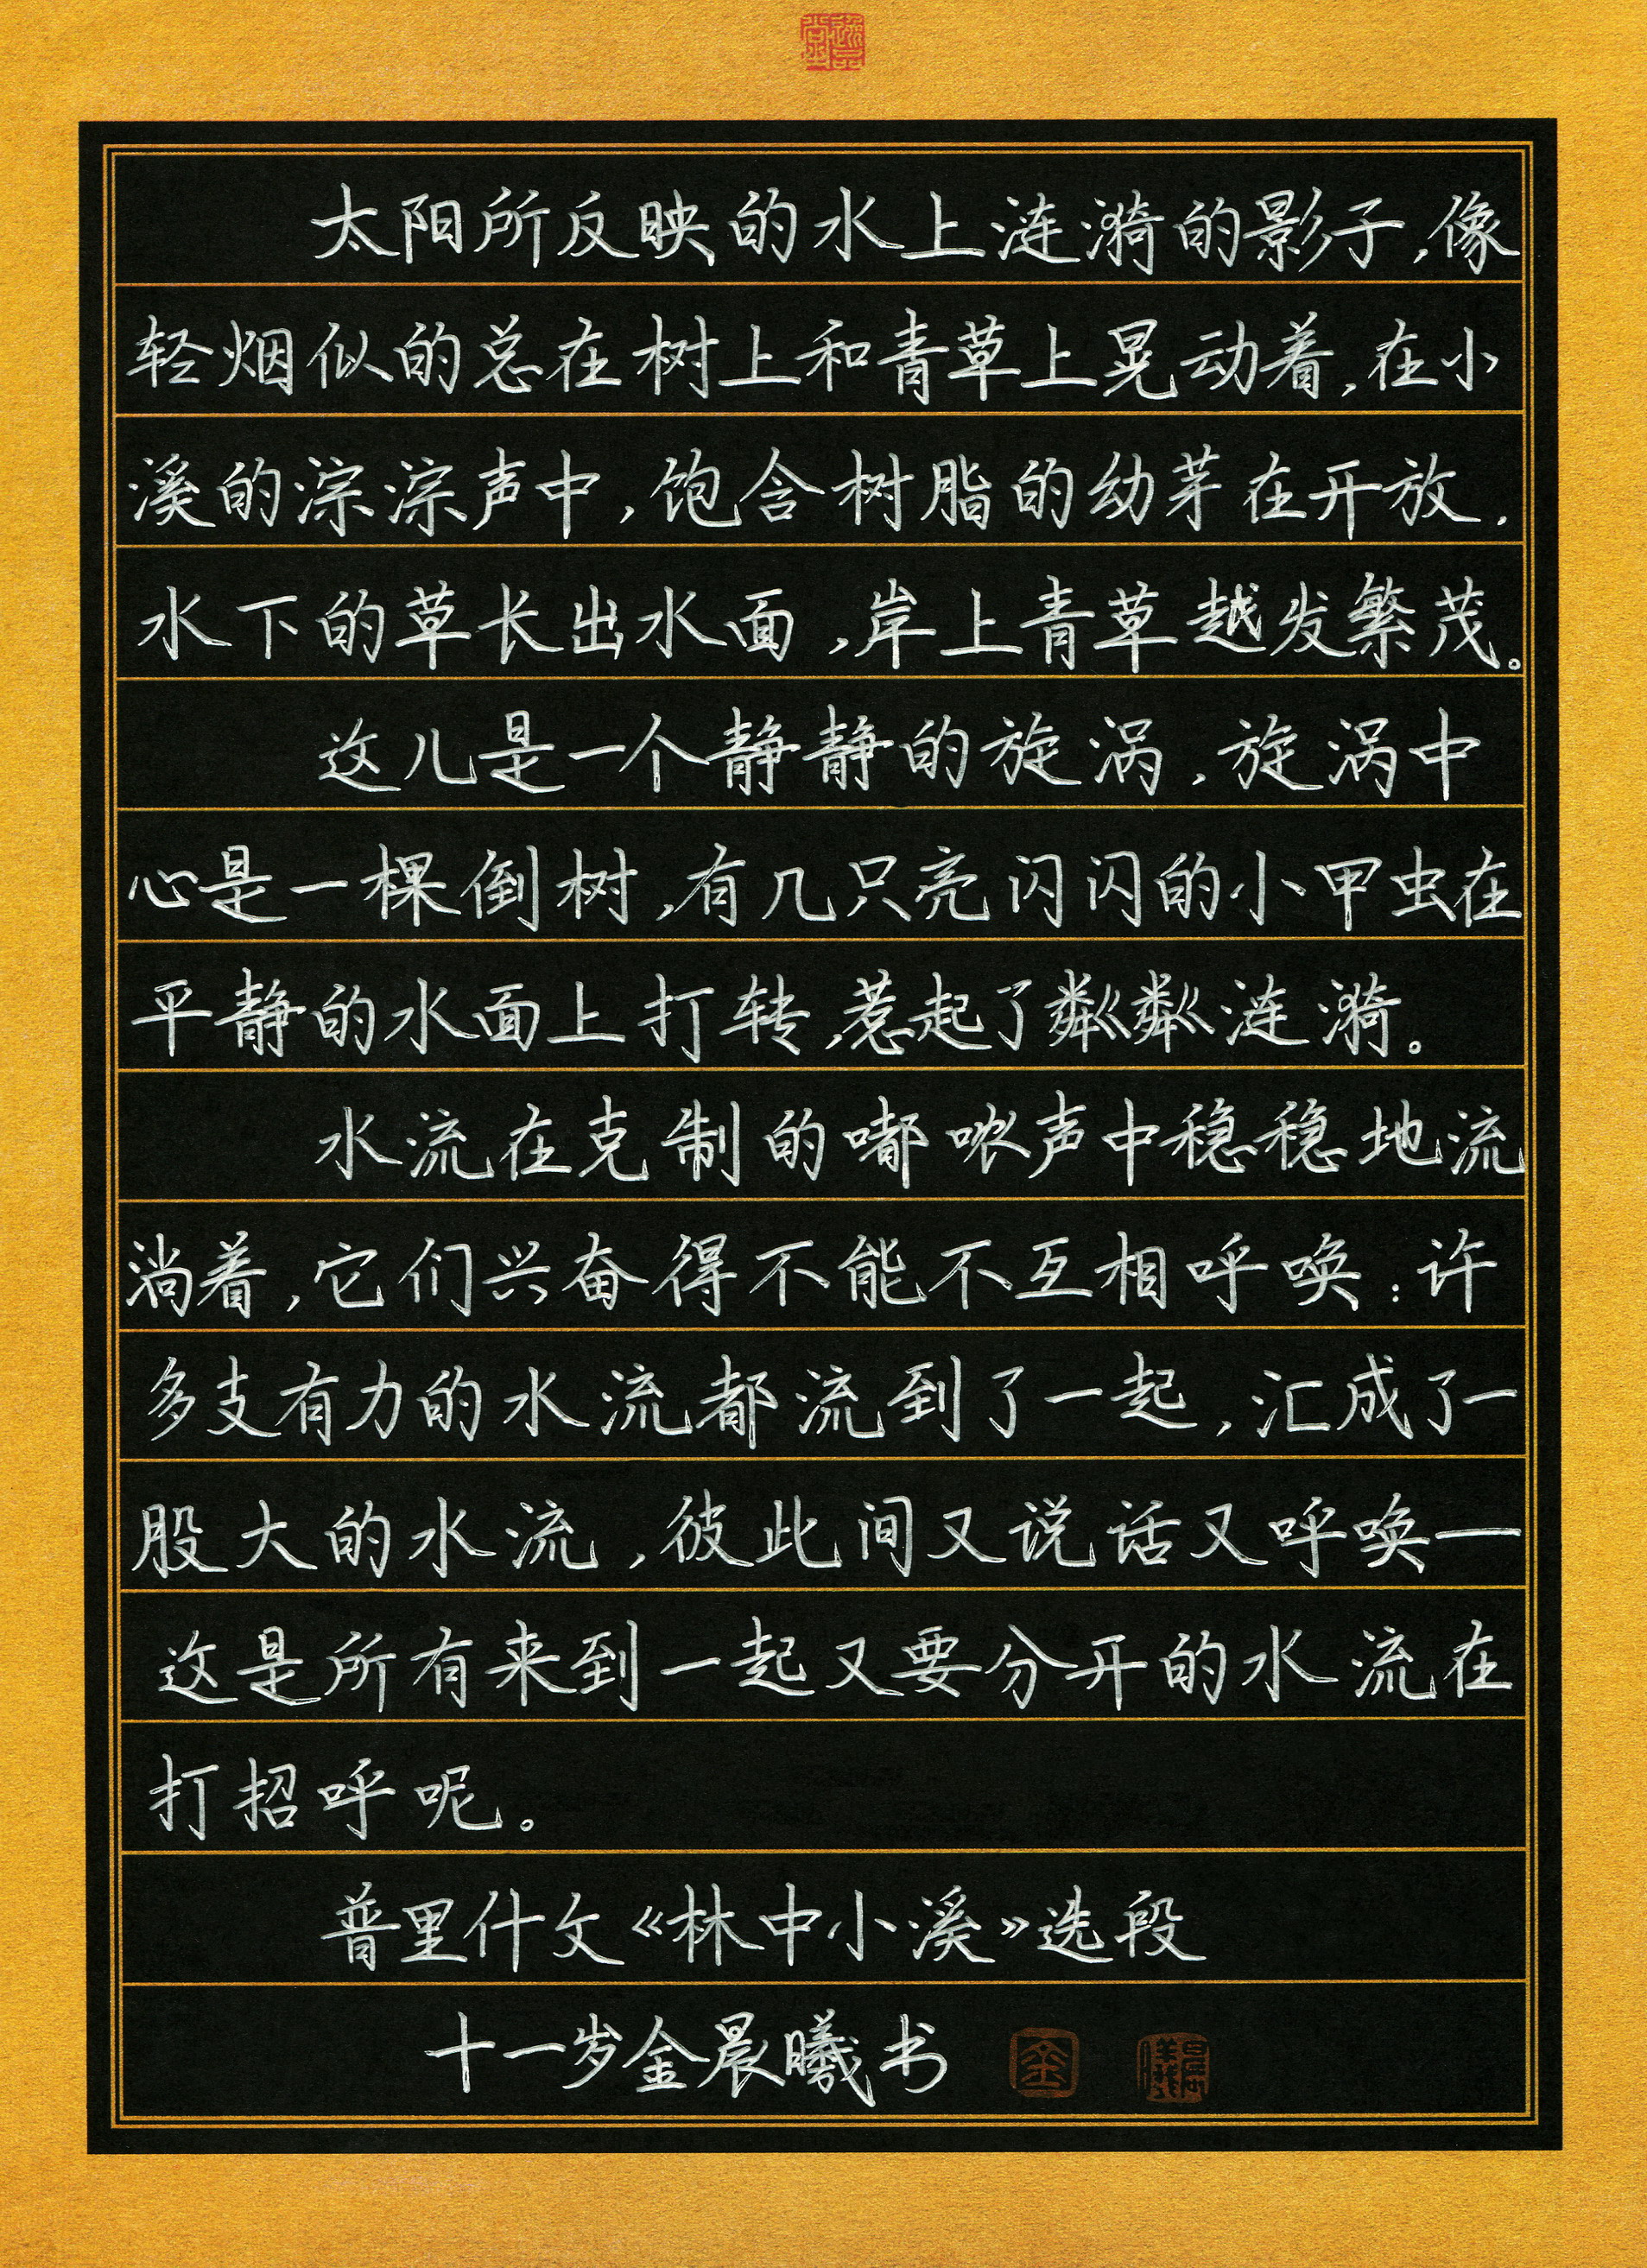 太阳所反映的水上涟漪的影子,像
轻烟似的总在树上和青草上晃动着,在小
溪的淙淙声中,饱含树脂的幼芽在开放,
水下的草长出水面,岸上青草越发繁茂。
这儿是一个静静的旋涡,旋涡中
心是一棵倒树,有几只亮闪闪的小甲虫在
平静的水面上打转,惹起了粼粼涟漪。
水流在克制的嘟哝声中稳稳地流
淌着,它们兴奋得不能不互相呼唤:许
多支有力的水流都流到了一起,汇成了一
股大的水流,彼此间又说话又呼唤一
这是所有来到一起又要分开的水流在
打招呼呢。
普里什文《林中小溪》选段
十一岁金晨曦书